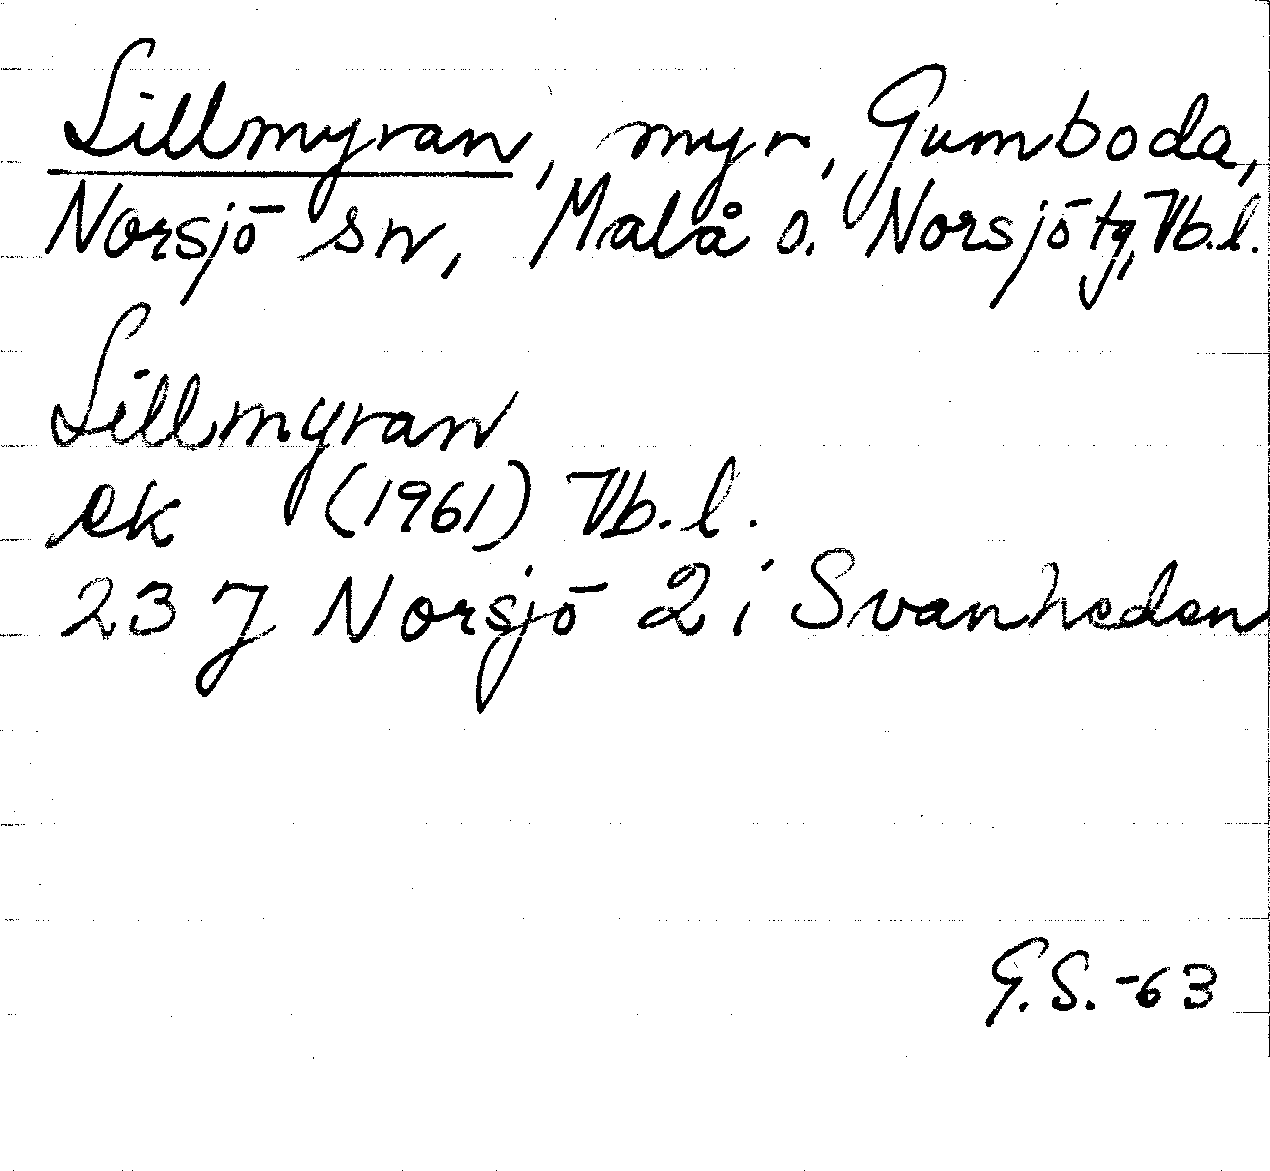 Lillmyran, myr, Gumboda,
Norsjö sn, Malå o. Norsjö tg, Vb.l.
Lillmyran
ek (1961) Vb.l.
23 J Norsjö 2 i Svanheden
G.S. -63